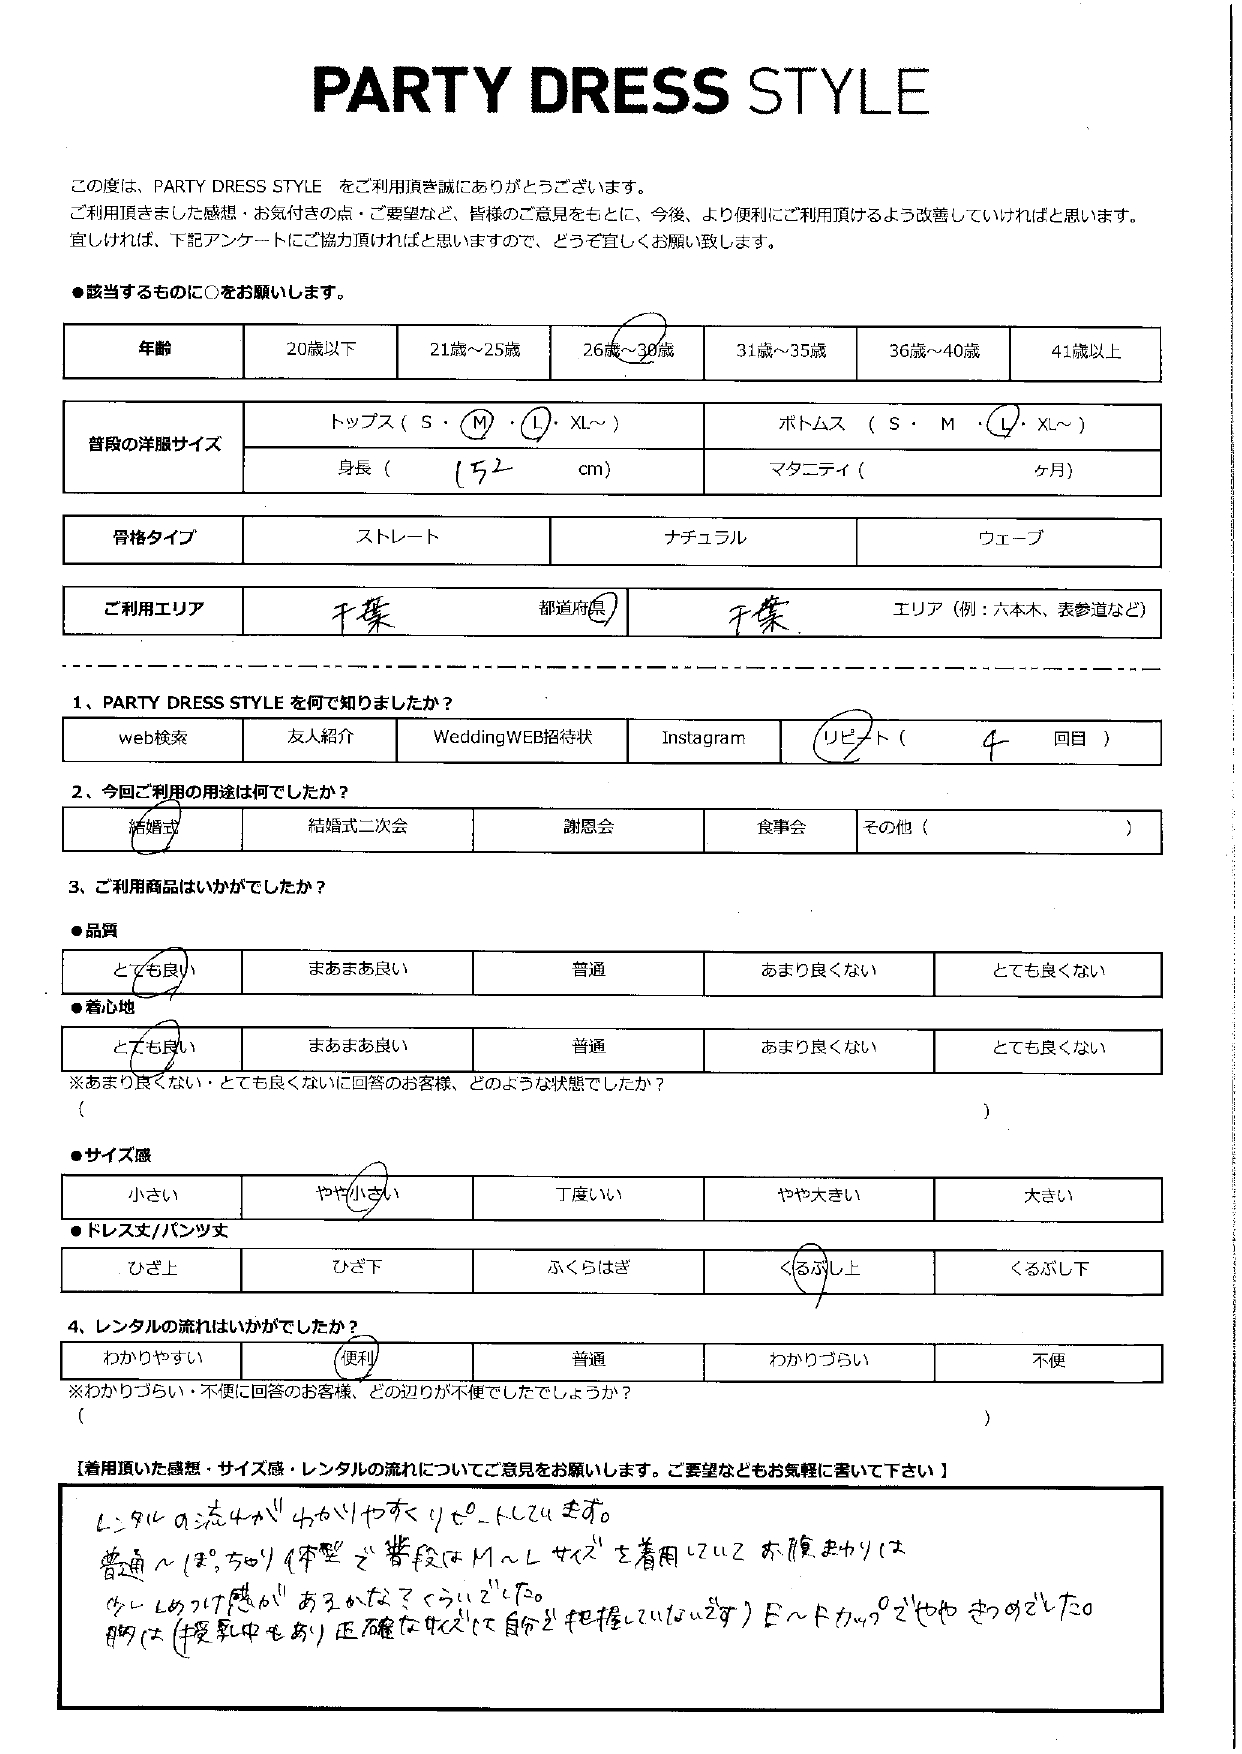 PARTY DRESS STYLE
この度は、PARTY DRESS STYLE をご利用頂き誠にありがとうございます。
ご利用頂きました感想・お気付きの点・ご要望など、皆様のご意見をもとに、今後、より便利にご利用頂けるよう改善していければと思います。
宜しければ、下記アンケートにご協力頂ければと思いますので、どうぞ宜しくお願い致します。
●該当するものに○をお願いします。
年齢 20歳以下 21歳～25歳 26歳～30歳 31歳～35歳 36歳～40歳 41歳以上
普段の洋服サイズ トップス ( S ・ M ・ L ・ XL～ ) ボトムス ( S ・ M ・ L ・ XL～ )
身長 ( 152 cm) マタニティ ( ヶ月)
骨格タイプ ストレート ナチュラル ウェーブ
ご利用エリア 千葉 都道府県 千葉 エリア（例：六本木、表参道など）
1、PARTY DRESS STYLE を何で知りましたか？
web検索 友人紹介 WeddingWEB招待状 Instagram リピート ( 4 回目 )
2、今回ご利用の用途は何でしたか？
結婚式 結婚式二次会 謝恩会 食事会 その他 ( )
3、ご利用商品はいかがでしたか？
●品質
とても良い まあまあ良い 普通 あまり良くない とても良くない
●着心地
とても良い まあまあ良い 普通 あまり良くない とても良くない
※あまり良くない・とても良くないに回答のお客様、どのような状態でしたか？
( )
●サイズ感
小さい やや小さい 丁度いい やや大きい 大きい
●ドレス丈/パンツ丈
ひざ上 ひざ下 ふくらはぎ くるぶし上 くるぶし下
4、レンタルの流れはいかがでしたか？
わかりやすい 便利 普通 わかりづらい 不便
※わかりづらい・不便に回答のお客様、どの辺りが不便でしたでしょうか？
( )
【着用頂いた感想・サイズ感・レンタルの流れについてご意見をお願いします。ご要望などもお気軽に書いて下さい 】
レンタルの流れがわかりやすくリピートしています。
普通～ぽっちゃり体型で普段はM～Lサイズを着用していてお腹まわりは
少ししめつけ感があるかな？くらいでした。
胸は(授乳中もあり正確なサイズは自分で把握していないです)E～Fカップでややきつめでした。